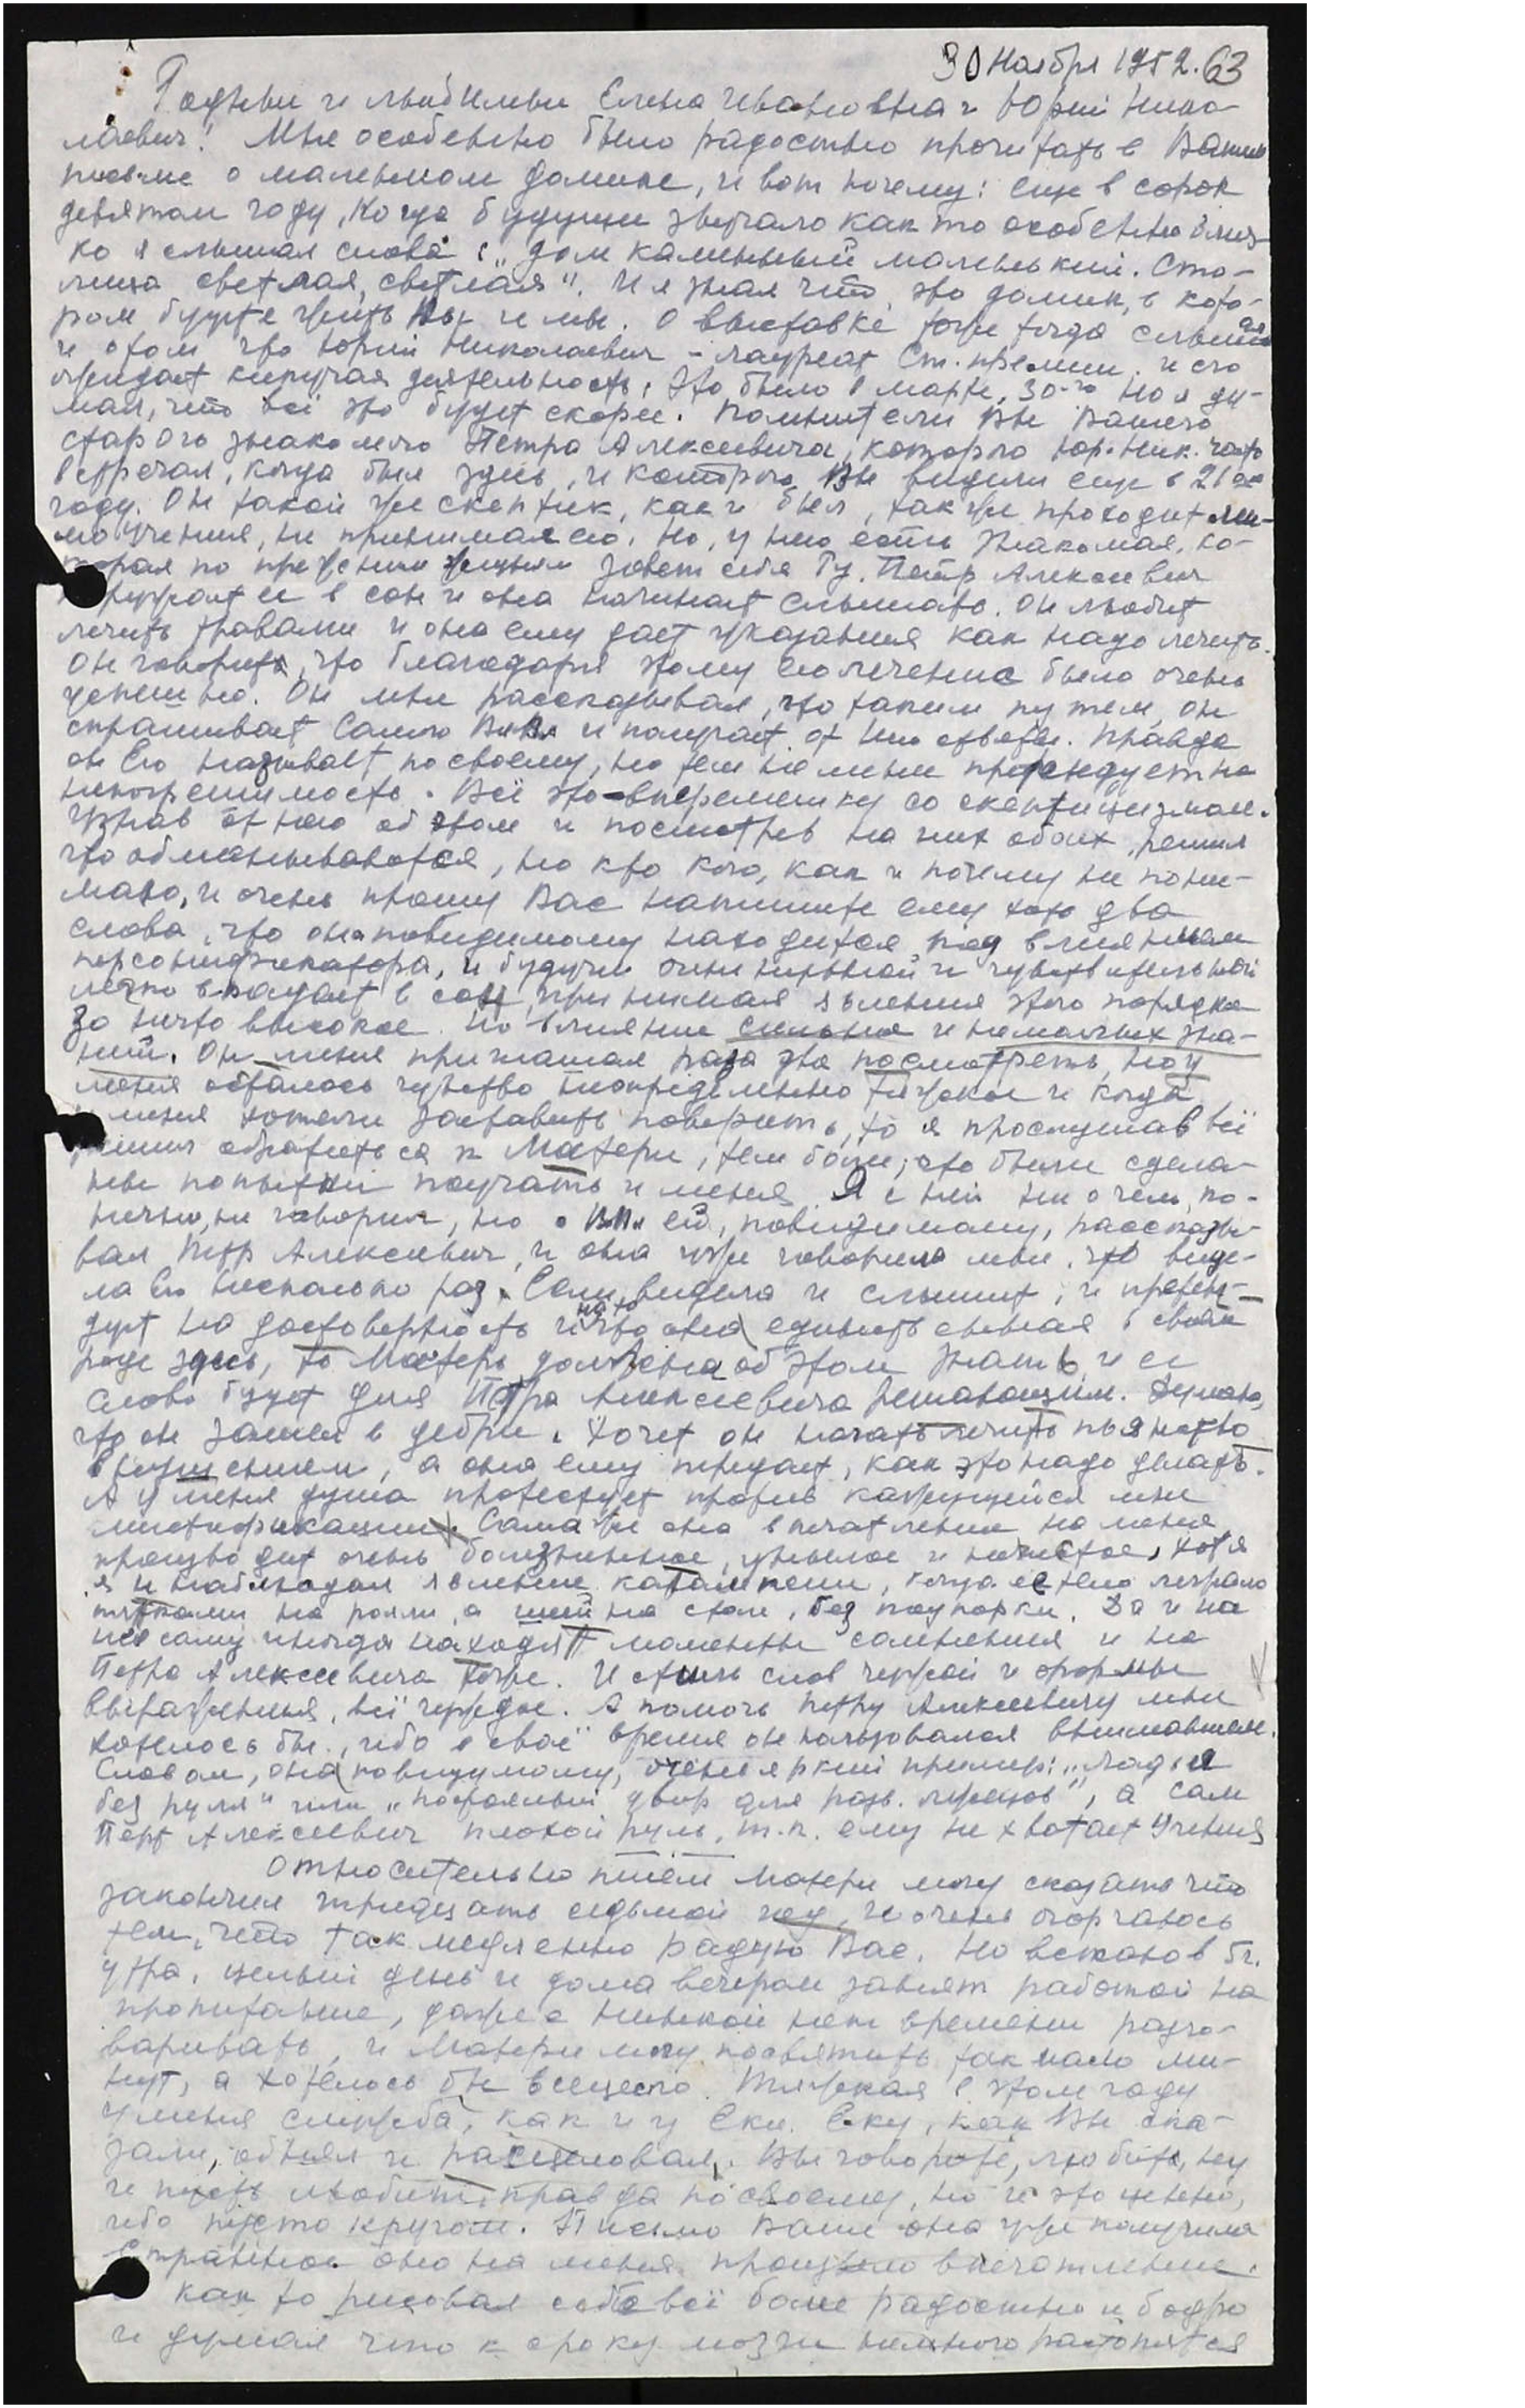 30 Ноября 1952. 63
Родные и любимые Елена Ивановна и Юрий Нико-
лаевич! Мне особенно было радостно прочитать в Вашем
письме о маленьком домике, и вот почему: еще в сорок
девятом году, когда будущее звучало как то особенно близ-
ко я слышал слова: „дом каменный маленький. Сто-
лица светлая, светлая". И я знал что, это домик, в кото-
ром будете жить Вы и мы. О выставке тоже тогда слышал
и о том, что Юрий Николаевич – лауреат Ст. премии и его
ожидает кипучая деятельность. Это было в марте, 30-го но я ду-
мал, что всё это будет скорее. Помните ли Вы Вашего
старого знакомого Петра Алексеевича, которого Юр. Ник. часто
встречал, когда был здесь, и которого Вы видели еще в 21 ом
году. Он такой же скептик, как и был, так же проходит ми-
мо Учения, не принимая его. Но, у него есть знакомая, ко-
торая по прежним жизням зовет себя Ту. Петр Алексеевич
погружает ее в сон и она начинает слышать. Он любит
лечить травами и она ему дает указания как надо лечить.
Он говорит, что благодаря этому его лечение было очень
успешно. Он мне рассказывал, что таким путем, он
спрашивает Самого Вл. и получает от Него ответы. Правда
он Его называет по своему, но тем не менее претендует на
непогрешимость. Всё это вперемешку со скептицизмом.
Узнав от него об этом и посмотрев на них обоих, решил
что обманываются, но кто кого, как и почему не пони-
маю, и очень прошу Вас напишите ему хоть два
слова, что она повидимому находится под влиянием
персонификатора, и будучи очень нервной и чувствительной
легко впадает в сон, принимая явления этого порядка
за нечто высокое. Но влияние сильное и немалых зна-
ний. Он меня приглашал раза два посмотреть, но у
меня осталось чувство неопределенно тяжелое и когда
меня хотели заставить поверить, то я прослушав всё
решил обратиться к Матери, тем более, что были сдела-
ны попытки поучать и меня. Я с ней ни о чем, ко-
нечно, не говорил, но о Вл. ей, повидимому, рассказы-
вал Петр Алексеевич, и она уже говорила мне, что виде-
ла Его несколько раз. Если видела и слышит, и претен-
дует на достоверность и на то что она единственная в своем
роде здесь, то Матерь должна об этом знать, и ее
слово будет для Петра Алексеевича решающим. Думаю,
что он зашел в дебри. Хочет он начать лечить пьянство
внушением, а она ему передает, как это надо делать.
А у меня душа протестует против кажущейся мне
мистификации. Сама же она впечатление на меня
производит очень болезненное, унылое и нечистое, хотя
я и наблюдал явление каталепсии, когда ее тело лежало
пятками на рояли, а шеей на стол, без подпорки. Да и на
нее саму иногда находят моменты сомнения и на
Петра Алексеевича тоже. И стиль слов чужой и формы
выражения, всё чуждое. А помочь Петру Алексеевичу мне
хотелось бы, ибо в своё время он пользовался вниманием.
Словом, она повидимому, очень яркий пример: „ладья
без руля" или „постоялый двор для разв. жрецов", а сам
Петр Алексеевич плохой руль, т.к. ему не хватает Учения
Относительно писем Матери могу сказать что
закончил тридцать седьмой год, и очень огорчаюсь
тем, что так медленно радую Вас. Но вставая в 5 ч.
утра, целый день и дома вечером занят работой на
пропитание, даже с Нинкой нет времени разго-
варивать, и Матери могу посвятить так мало ми-
нут, а хотелось бы всецело. Тяжелая в этом году
у меня служба, как и у Еки. Еку, как Вы ска-
зали, обнял и расцеловал. Вы говорите, любить, ну
и пусть любит, правда по своему, но и это ценно,
ибо пусто кругом. Письмо Ваше она уже получила
Странное оно на меня произвело впечатление.
как то рисовал себе всё более радостно и бодро
и думал что к сроку мозги немного растопятся